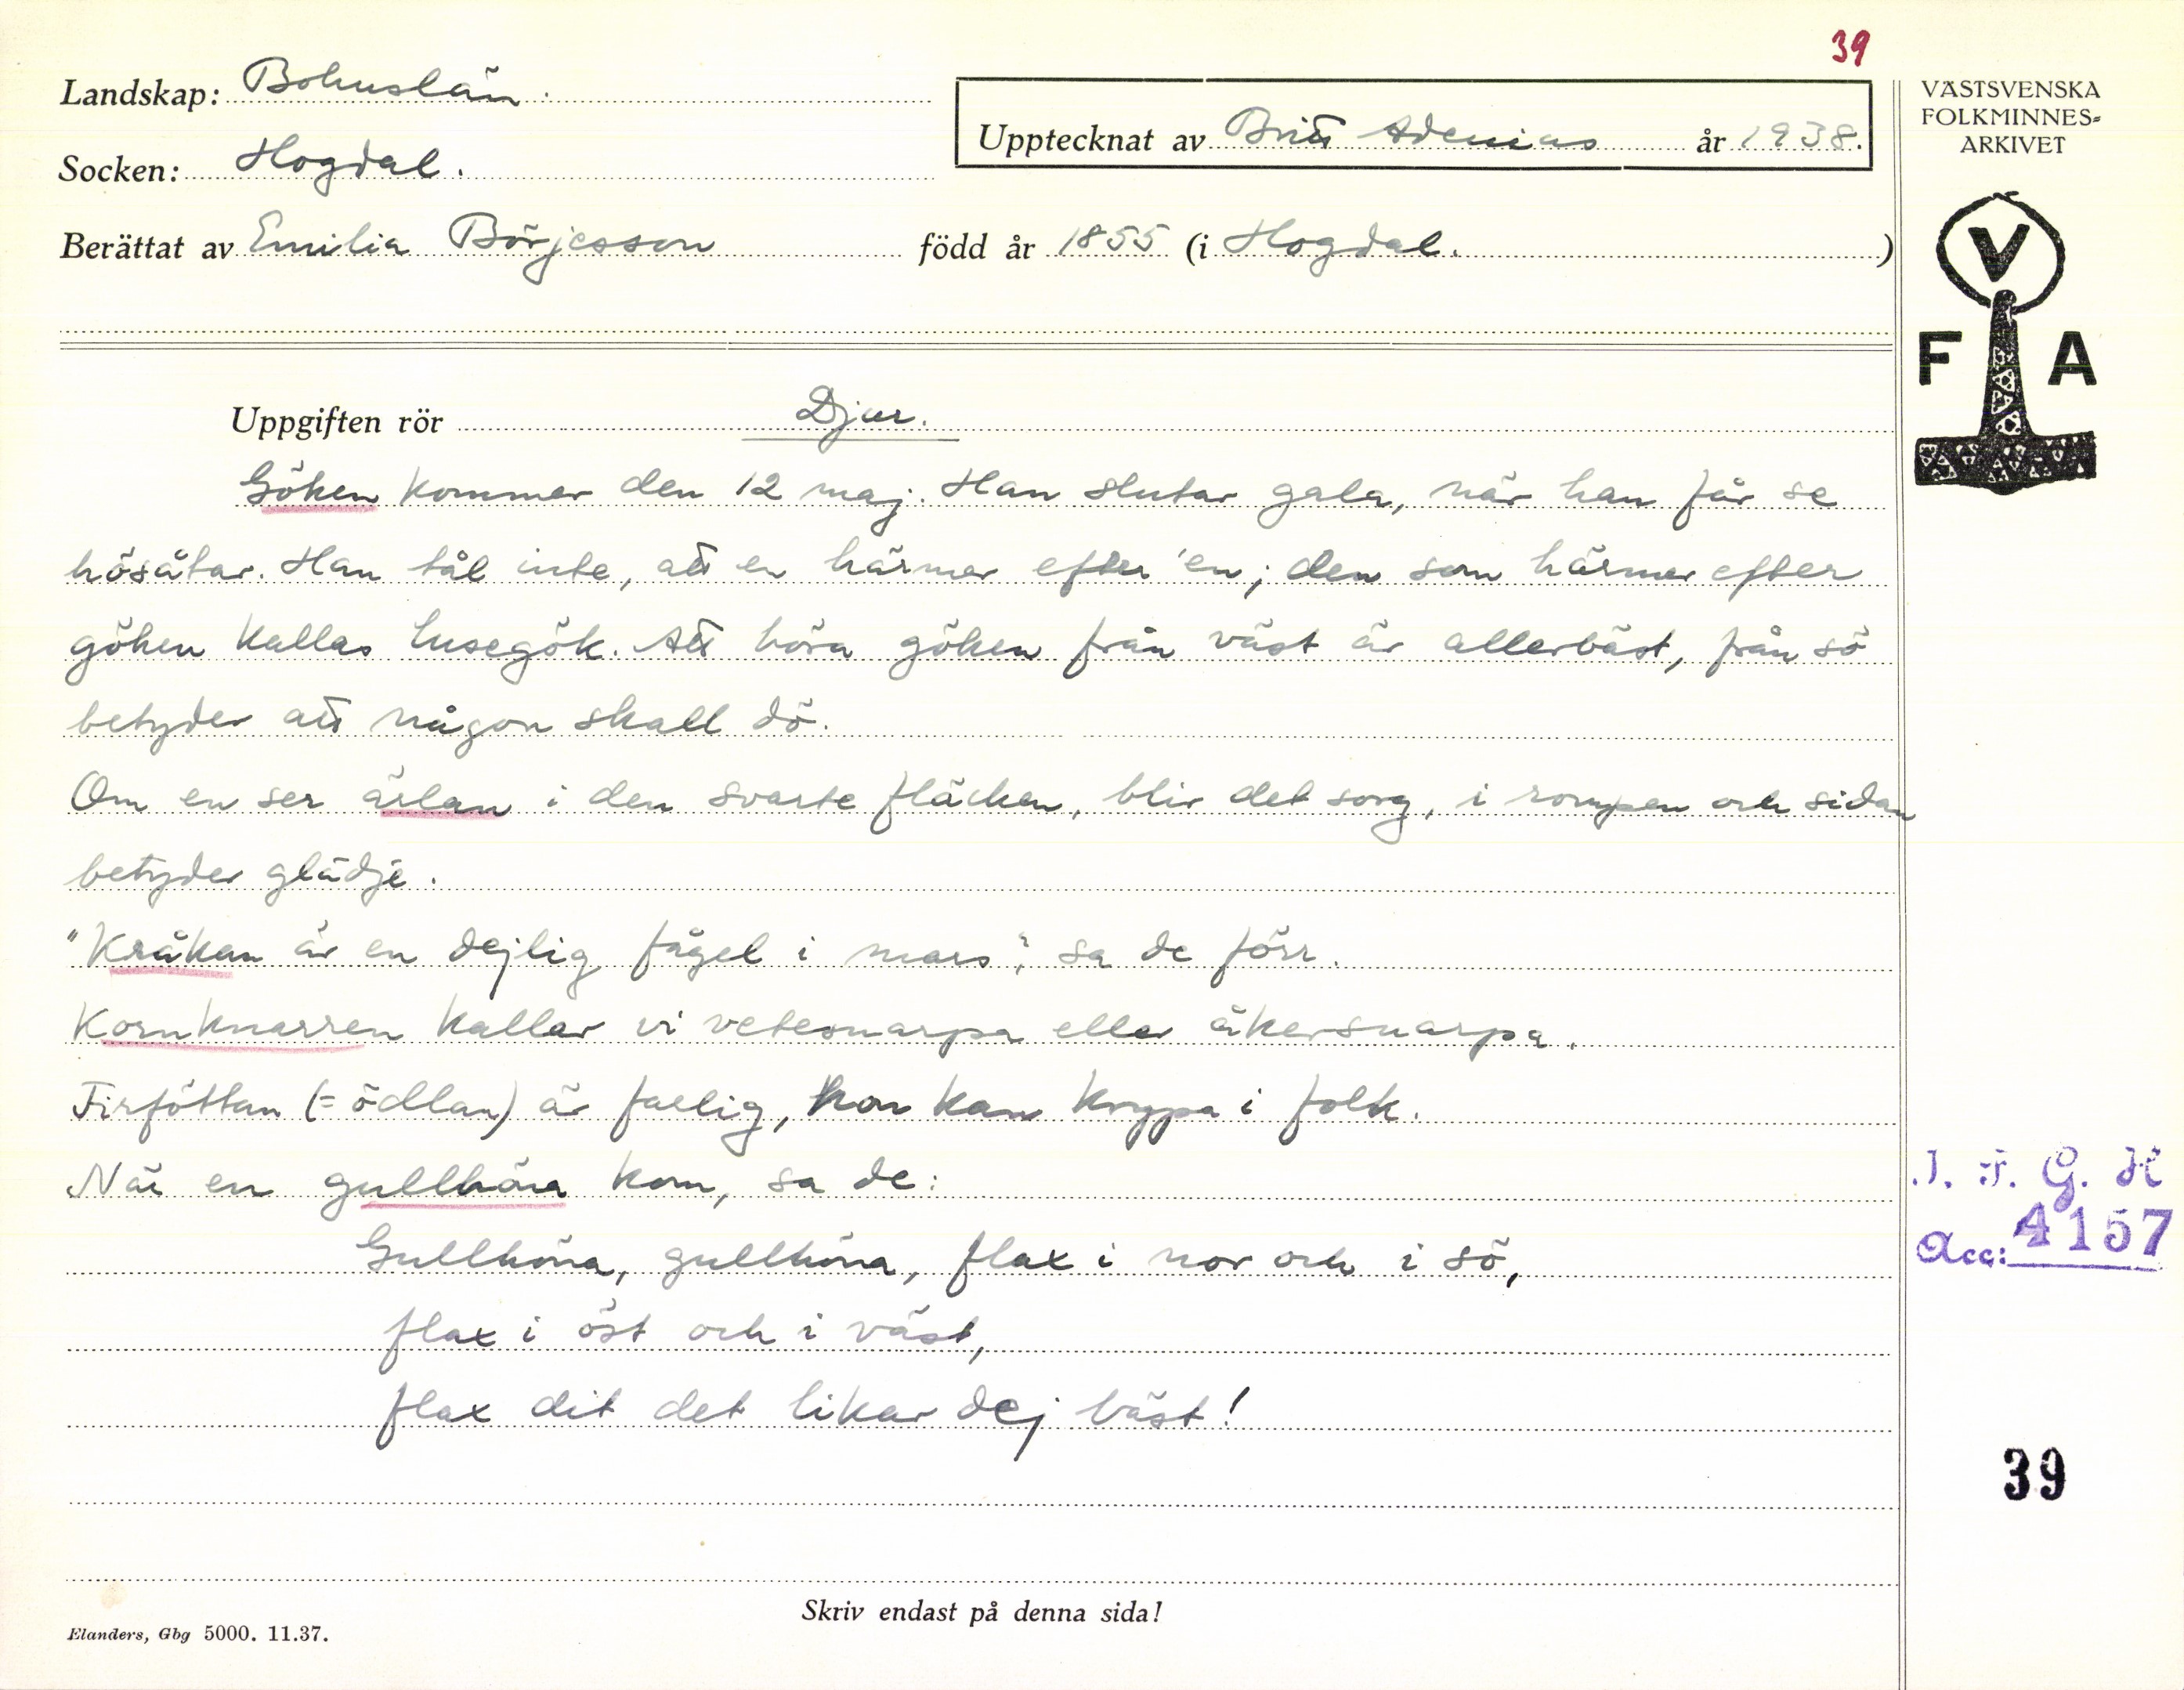 39
Landskap: Bohuslän.
Upptecknat av Britt Adenius år 1938.
Socken: Hogdal.
Berättat av Emilia Börjesson född år 1855 (i Hogdal. )
VÄSTSVENSKA
FOLKMINNES=
ARKIVET
V
F A
Uppgiften rör Djur.
Göken kommer den 12 maj. Han slutar gala, när han får se
hösåtar. Han tål inte, att en härmar efter 'en; den som härmar efter
göken kallas lusegök. Att höra göken från väst är allerbäst, från sö
betyder att någon skall dö.
Om en ser ärlan i den svarte fläcken, blir det sorg, i rompen och sidan
betyder glädje.
"Kråkan är en dejlig fågel i mars", sa de förr.
Kornknarren kallar vi vetesnarpa eller åkersnarpa.
Firföttan (= ödlan) är farlig, hon kan krypa i folk.
När en gullhöna kom, sa de:
Gullhöna, gullhöna, flax i nor och i sö,
flax i öst och i väst,
flax dit det likar dej bäst!
I. F. G. H
Acc: 4157
39
Skriv endast på denna sida!
Elanders, Gbg 5000. 11.37.